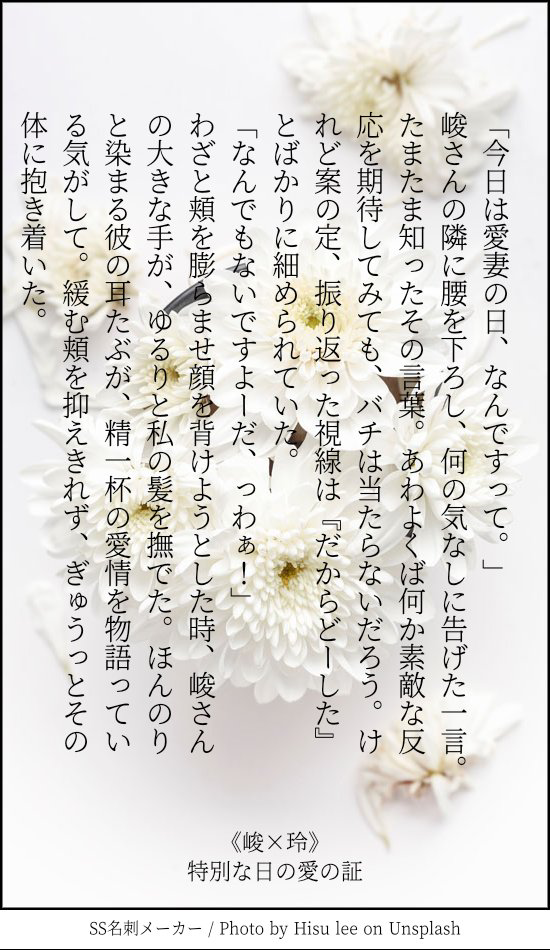 「今日は愛妻の日、なんですって。」
峻さんの隣に腰を下ろし、何の気なしに告げた一言。
たまたま知ったその言葉。あわよくば何か素敵な反
応を期待してみても、バチは当たらないだろう。け
れど案の定、振り返った視線は『だからどーした』
とばかりに細められていた。
「なんでもないですよーだ、っわぁ！」
わざと頬を膨らませ顔を背けようとした時、峻さん
の大きな手が、ゆるりと私の髪を撫でた。ほんのり
と染まる彼の耳たぶが、精一杯の愛情を物語ってい
る気がして。緩む頬を抑えきれず、ぎゅうっとその
体に抱き着いた。
《峻×玲》
特別な日の愛の証
SS名刺メーカー / Photo by Hisu lee on Unsplash